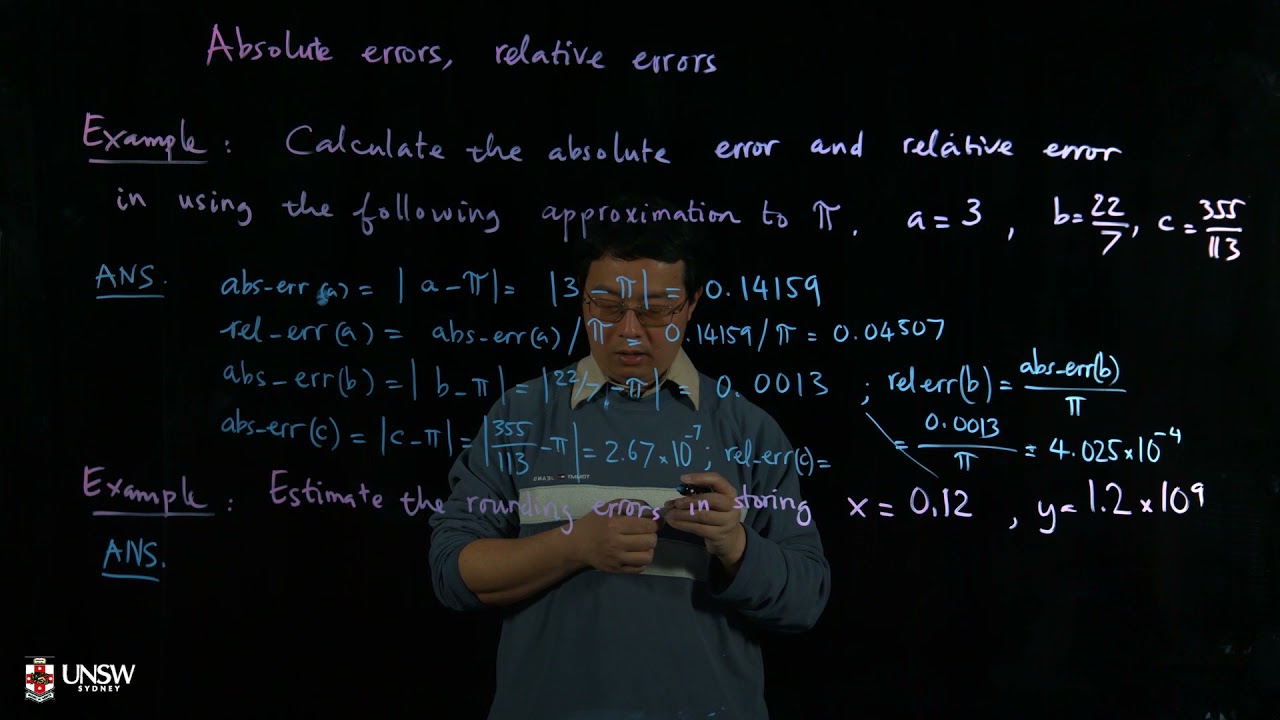 Absolute errors, relative errors
Example : Calculate the absolute error and relative error
in using the following approximation to π. a = 3 , b = 22/7, c = 355/113
ANS. abs-err(a) = | a - π | = | 3 - π | = 0.14159
rel_err(a) = abs-err(a) / π = 0.14159 / π = 0.04507
abs_err(b) = | b - π | = | 22/7 - π | = 0.0013 ; rel err(b) = abs-err(b)/π
= 0.0013/π = 4.025 × 10^-4
abs-err(c) = | c - π | = | 355/113 - π | = 2.67 × 10^-7 ; rel_err(c) =
Example : Estimate the rounding errors in storing x = 0.12 , y = 1.2 × 10^9
ANS.
UNSW
SYDNEY